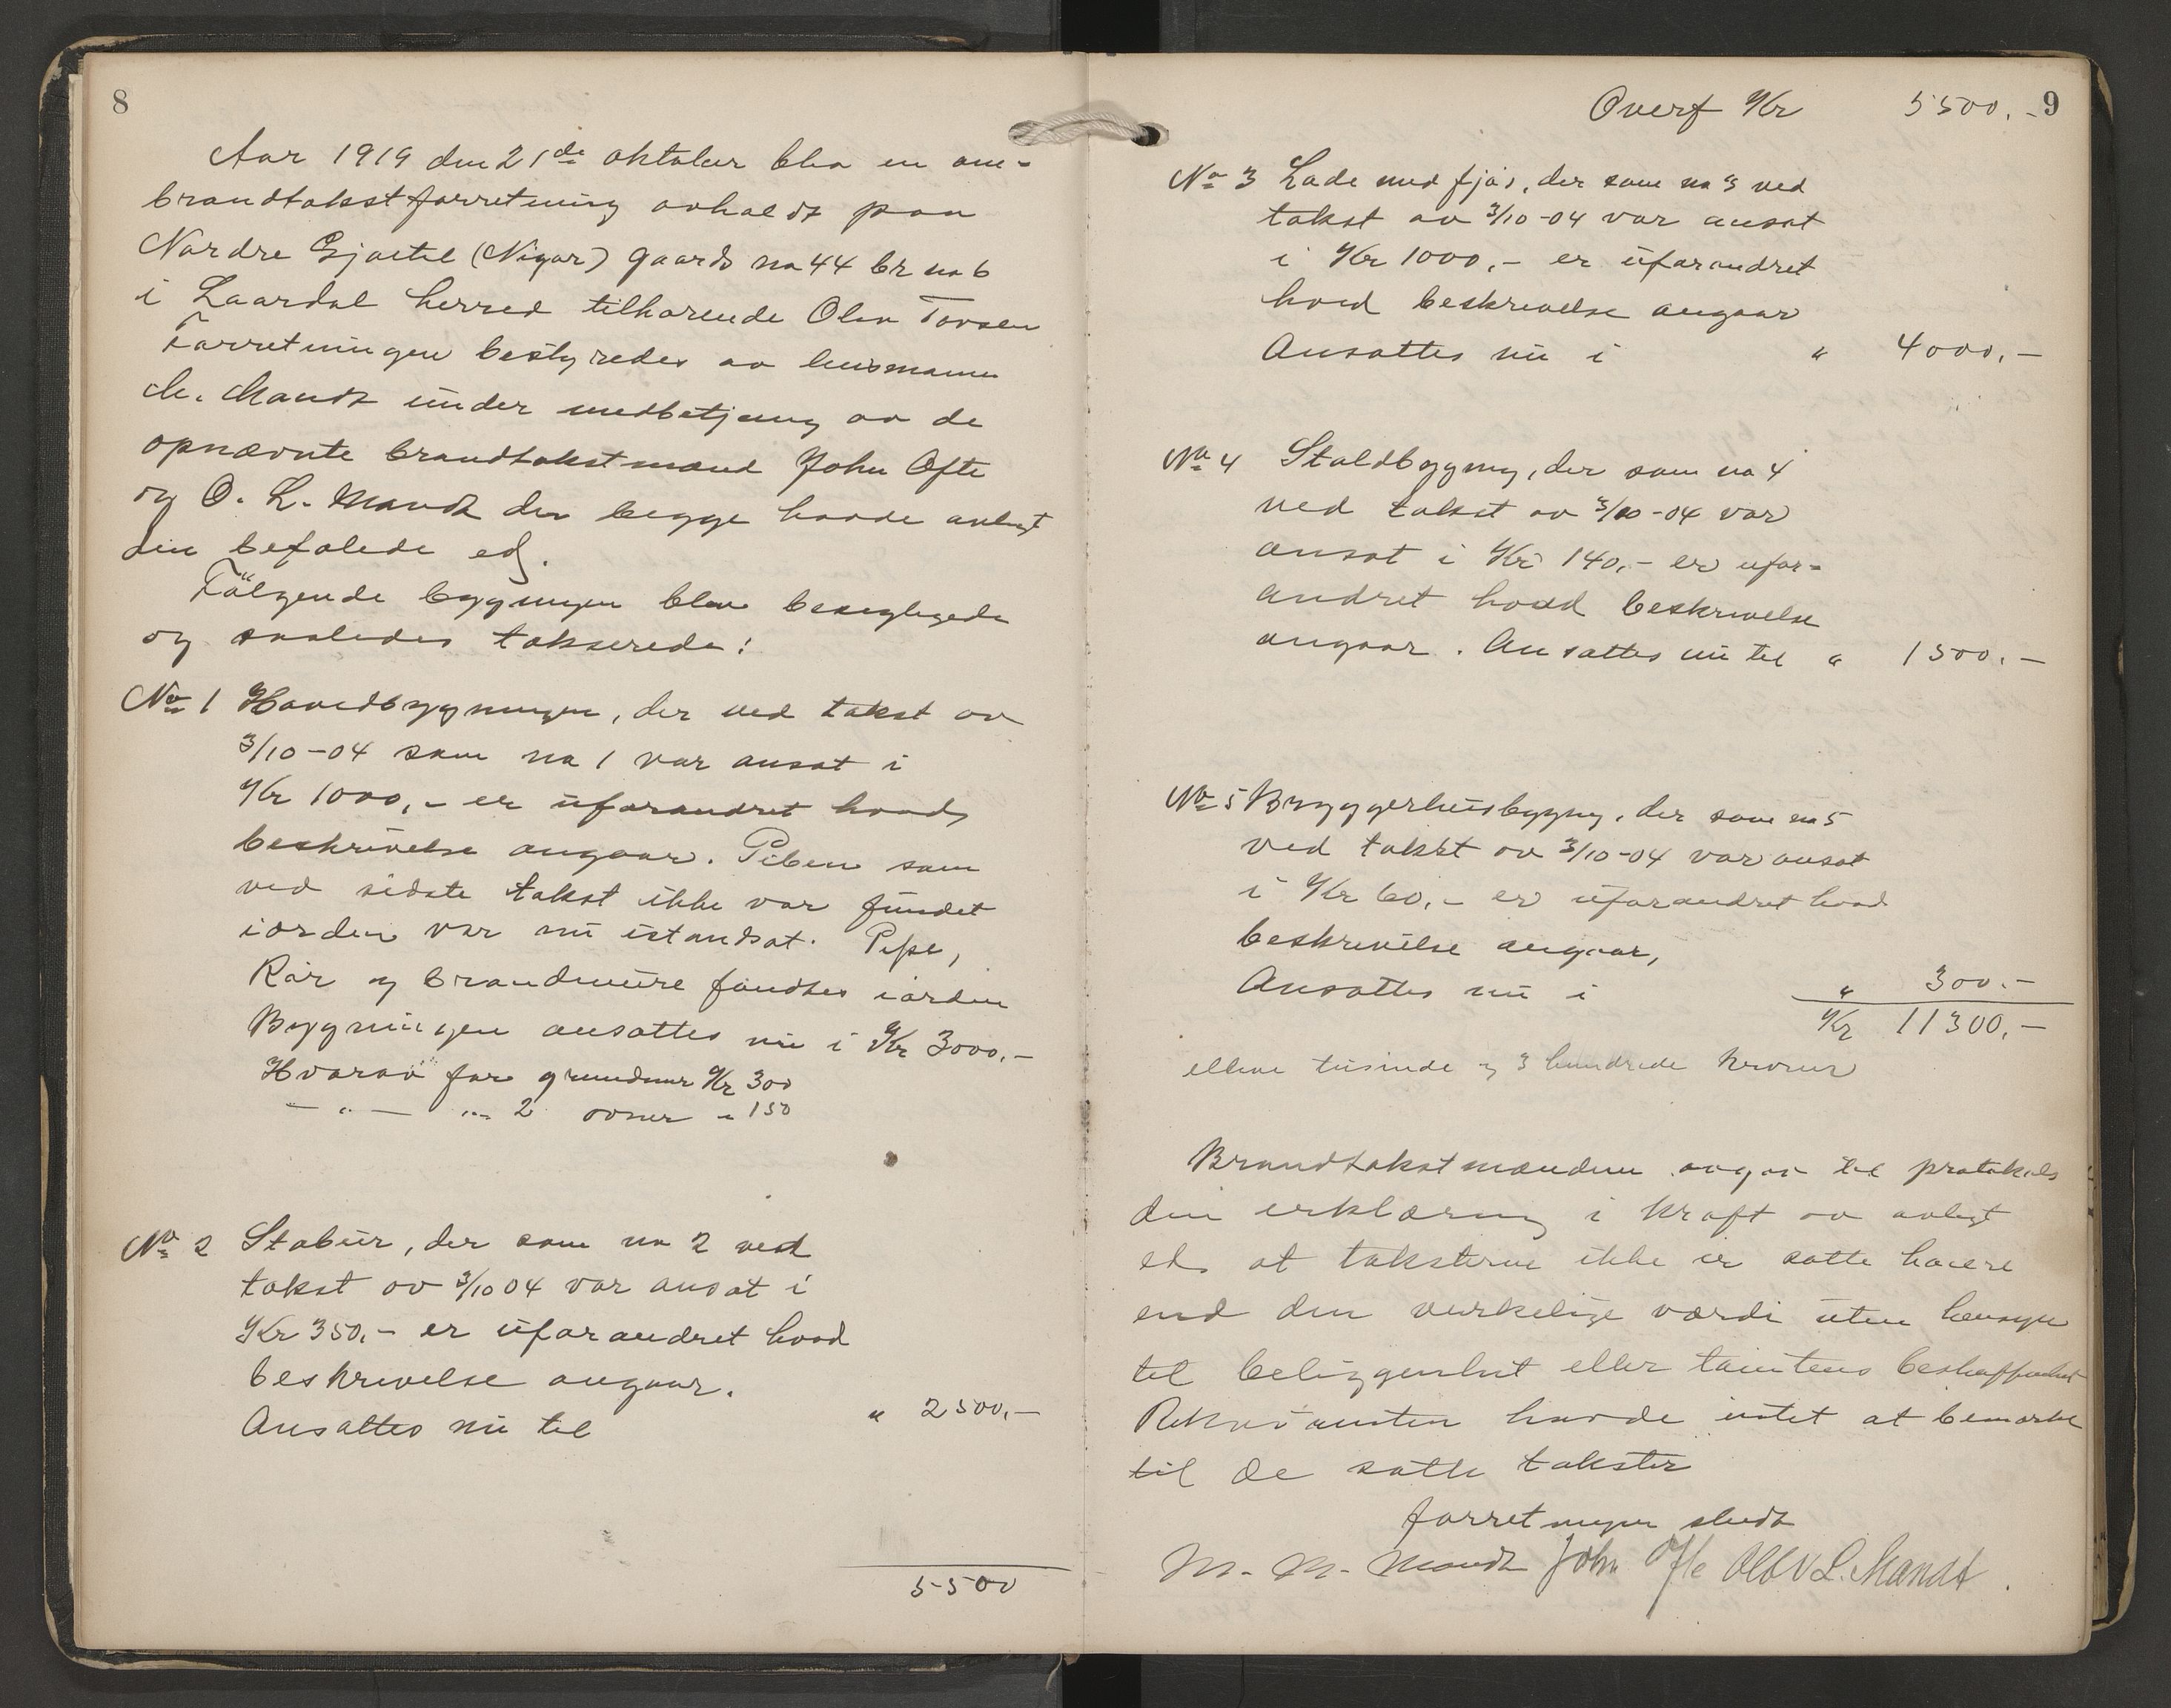 8
Aar 1919 den 21de oktober blev en om-
brandtakstforretning avholdt paa
Nordre Gjøitil (Nigar) gaards no 44 br no 6
i Laardal herred tilhørende Olav Tovsen
Forretningen bestyredes av lensmann
M. Mandt under medbetjening av de
opnævnte brandtakstmænd John Ofte
og O. L. Mandt der begge havde avlagt
den befalede ed.
Følgende bygninger blev besigtigede
og saaledes takserede:
No 1 Hovedbygningen, der ved takst av
3/10-04 som no 1 var ansat i
Kr 1000,- er uforandret hvad
beskrivelse angaar. Piben som
ved sidste takst ikke var fundet
iorden var nu istandsat. Pipe,
Rør og brandmure fandtes iorden
Bygningen ansattes nu i Kr 3000,-
Hvorav for grundmur Kr 300
- " - " 2 ovner " 150
No 2 Stabur, der som no 2 ved
takst av 3/10 04 var ansat i
Kr 350,- er uforandret hvad
beskrivelse angaar.
Ansattes nu til " 2500,-
5500
Overf Kr 5500,- 9
No 3 Lade med fjøs, der som no 3 ved
takst av 3/10-04 var ansat
i Kr 1000,- er uforandret
hvad beskrivelse angaar
Ansattes nu i " 4000,-
No 4 Staldbygning, der som no 4
ved takst av 3/10-04 var
ansat i Kr 140,- er ufor-
andret hvad beskrivelse
angaar. Ansattes nu til " 1500,-
No 5 Bryggerhusbygng, der som no 5
ved takst av 3/10-04 var ansat
i Kr 60,- er uforandret hvad
beskrivelse angaar,
Ansattes nu i " 300.-
Kr 11300,-
elleve tusinde og 3 hundrede kroner
Brandtakstmændene avgav til protokols
den erklæring i kraft av avlagt
ed at taksterne ikke er satte høiere
end den virkelige værdi uten hensyn
til beliggenhet eller tomtens beskaffenhet
Rekvirenten havde intet at bemærke
til de satte takster
forretningen sluttt
M. M. Mandt John Ofte Olav L. Mandt.